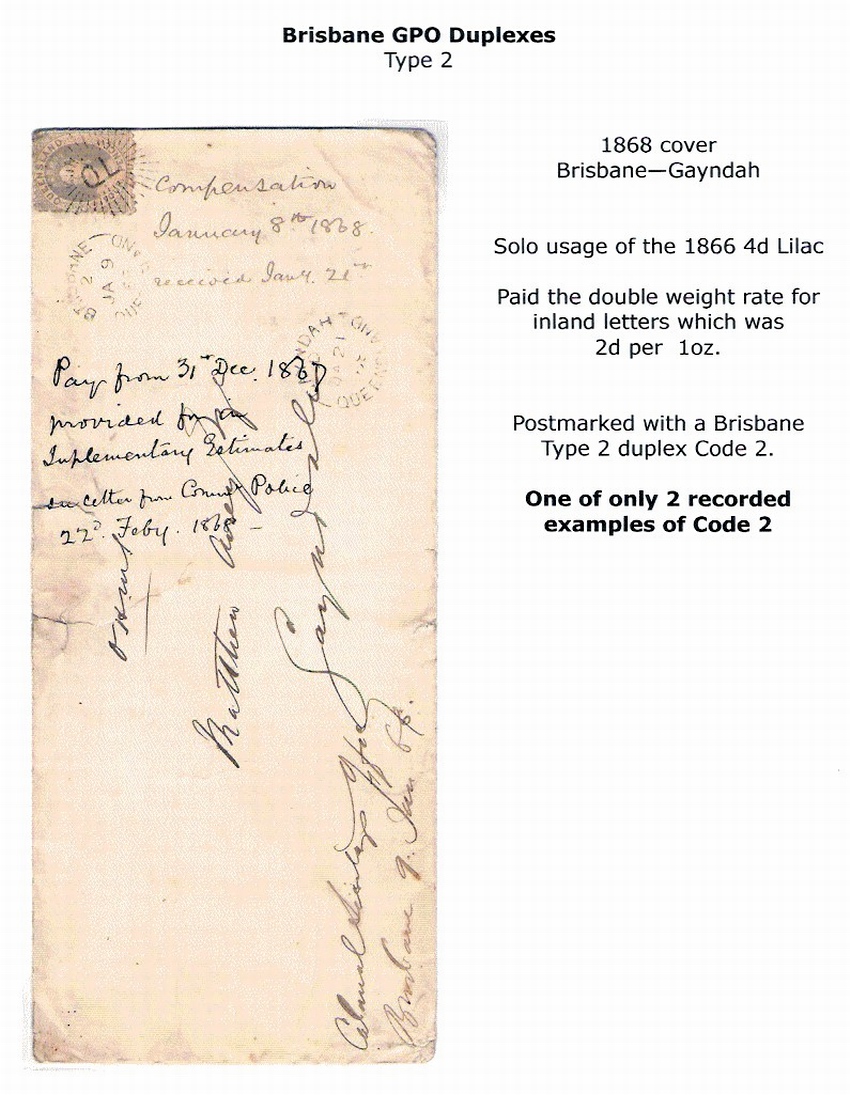 Brisbane GPO Duplexes
Type 2
1868 cover
Brisbane—Gayndah
Solo usage of the 1866 4d Lilac
Paid the double weight rate for
inland letters which was
2d per 1oz.
Postmarked with a Brisbane
Type 2 duplex Code 2.
One of only 2 recorded
examples of Code 2
QUEENSLAND
QL
Compensation
January 8th 1868.
received Jany. 21st
BRISBANE
2
JA 9
QUEENSLAND
GAYNDAH
JA 21
QUEENSLAND
Pay from 31st Dec. 1867
provided for in
Supplementary Estimates
letter from Police
22d. Feby. 1868 –
OHMS
Matthew
Gayndah
Colonial
Brisbane 9. Jan. 68.